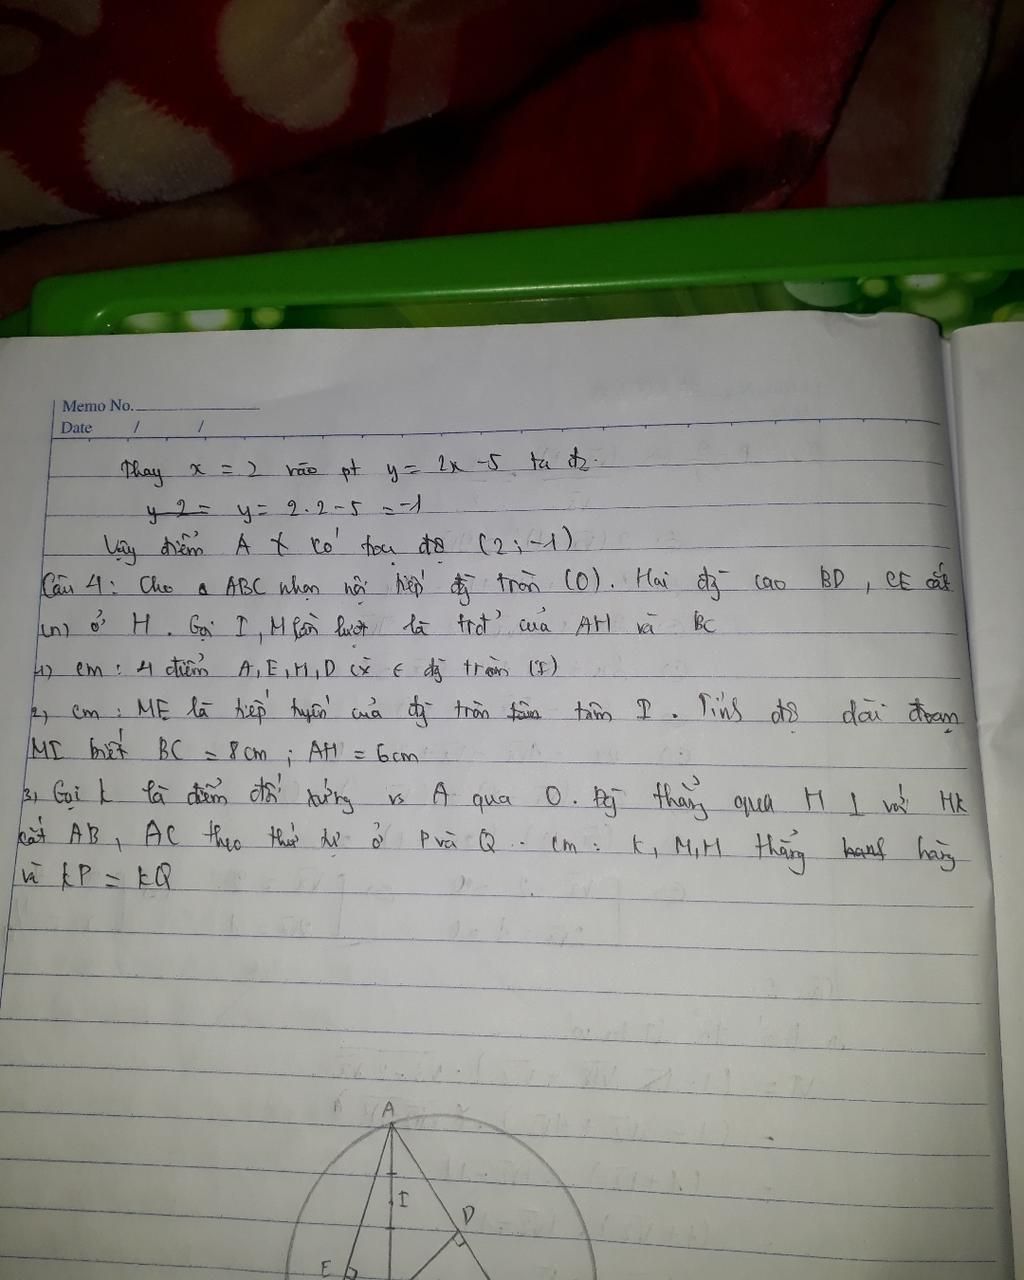 Memo No.
Date / /
Thay x = 2 vào pt y = 2x - 5 ta đc
y 2 = y = 2.2 - 5 = -1
Vậy điểm A có tọa độ (2; -1)
Câu 4: Cho Δ ABC nhọn nội tiếp đg tròn (O). Hai đg cao BD, CE cắt
ở H. Gọi I, M lần lượt là trđ của AH và BC
1, cm: 4 điểm A, E, H, D cx ∈ đg tròn (I)
2, cm: ME là tiếp tuyến của đg tròn tâm I. Tính độ dài đoạn
MI biết BC = 8cm; AH = 6cm
3, Gọi K là điểm đối xứng vs A qua O. Đg thẳng qua H ⊥ với HK
cắt AB, AC theo thứ tự ở P và Q. cm: K, M, H thẳng hàng
và KP = KQ
A
I
D
E